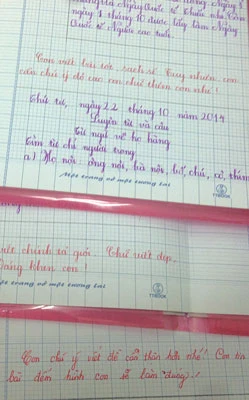 Ngày Quốc tế Thiếu nhi
ngày 1 tháng 10 được lấy làm Ngày
Quốc tế Người cao tuổi.
Con viết bài tốt, sạch sẽ. Tuy nhiên con
cần chú ý độ cao con chữ thêm con nhé!
Thứ tư, ngày 22 tháng 10 năm 2014
Luyện từ và câu
Từ ngữ về họ hàng
Tìm từ chỉ người trong
a) Họ nội: ông nội, bà nội, bố, chú, cô, thím
Một trang vở một tương lai
TYBOOK
viết chính tả giỏi. Chữ viết đẹp.
đáng khen con!
Một trang vở một tương lai
TYBOOK
Con chú ý viết đề cẩn thận hơn nhé! Con
bài đếm hình con sẽ làm đúng!